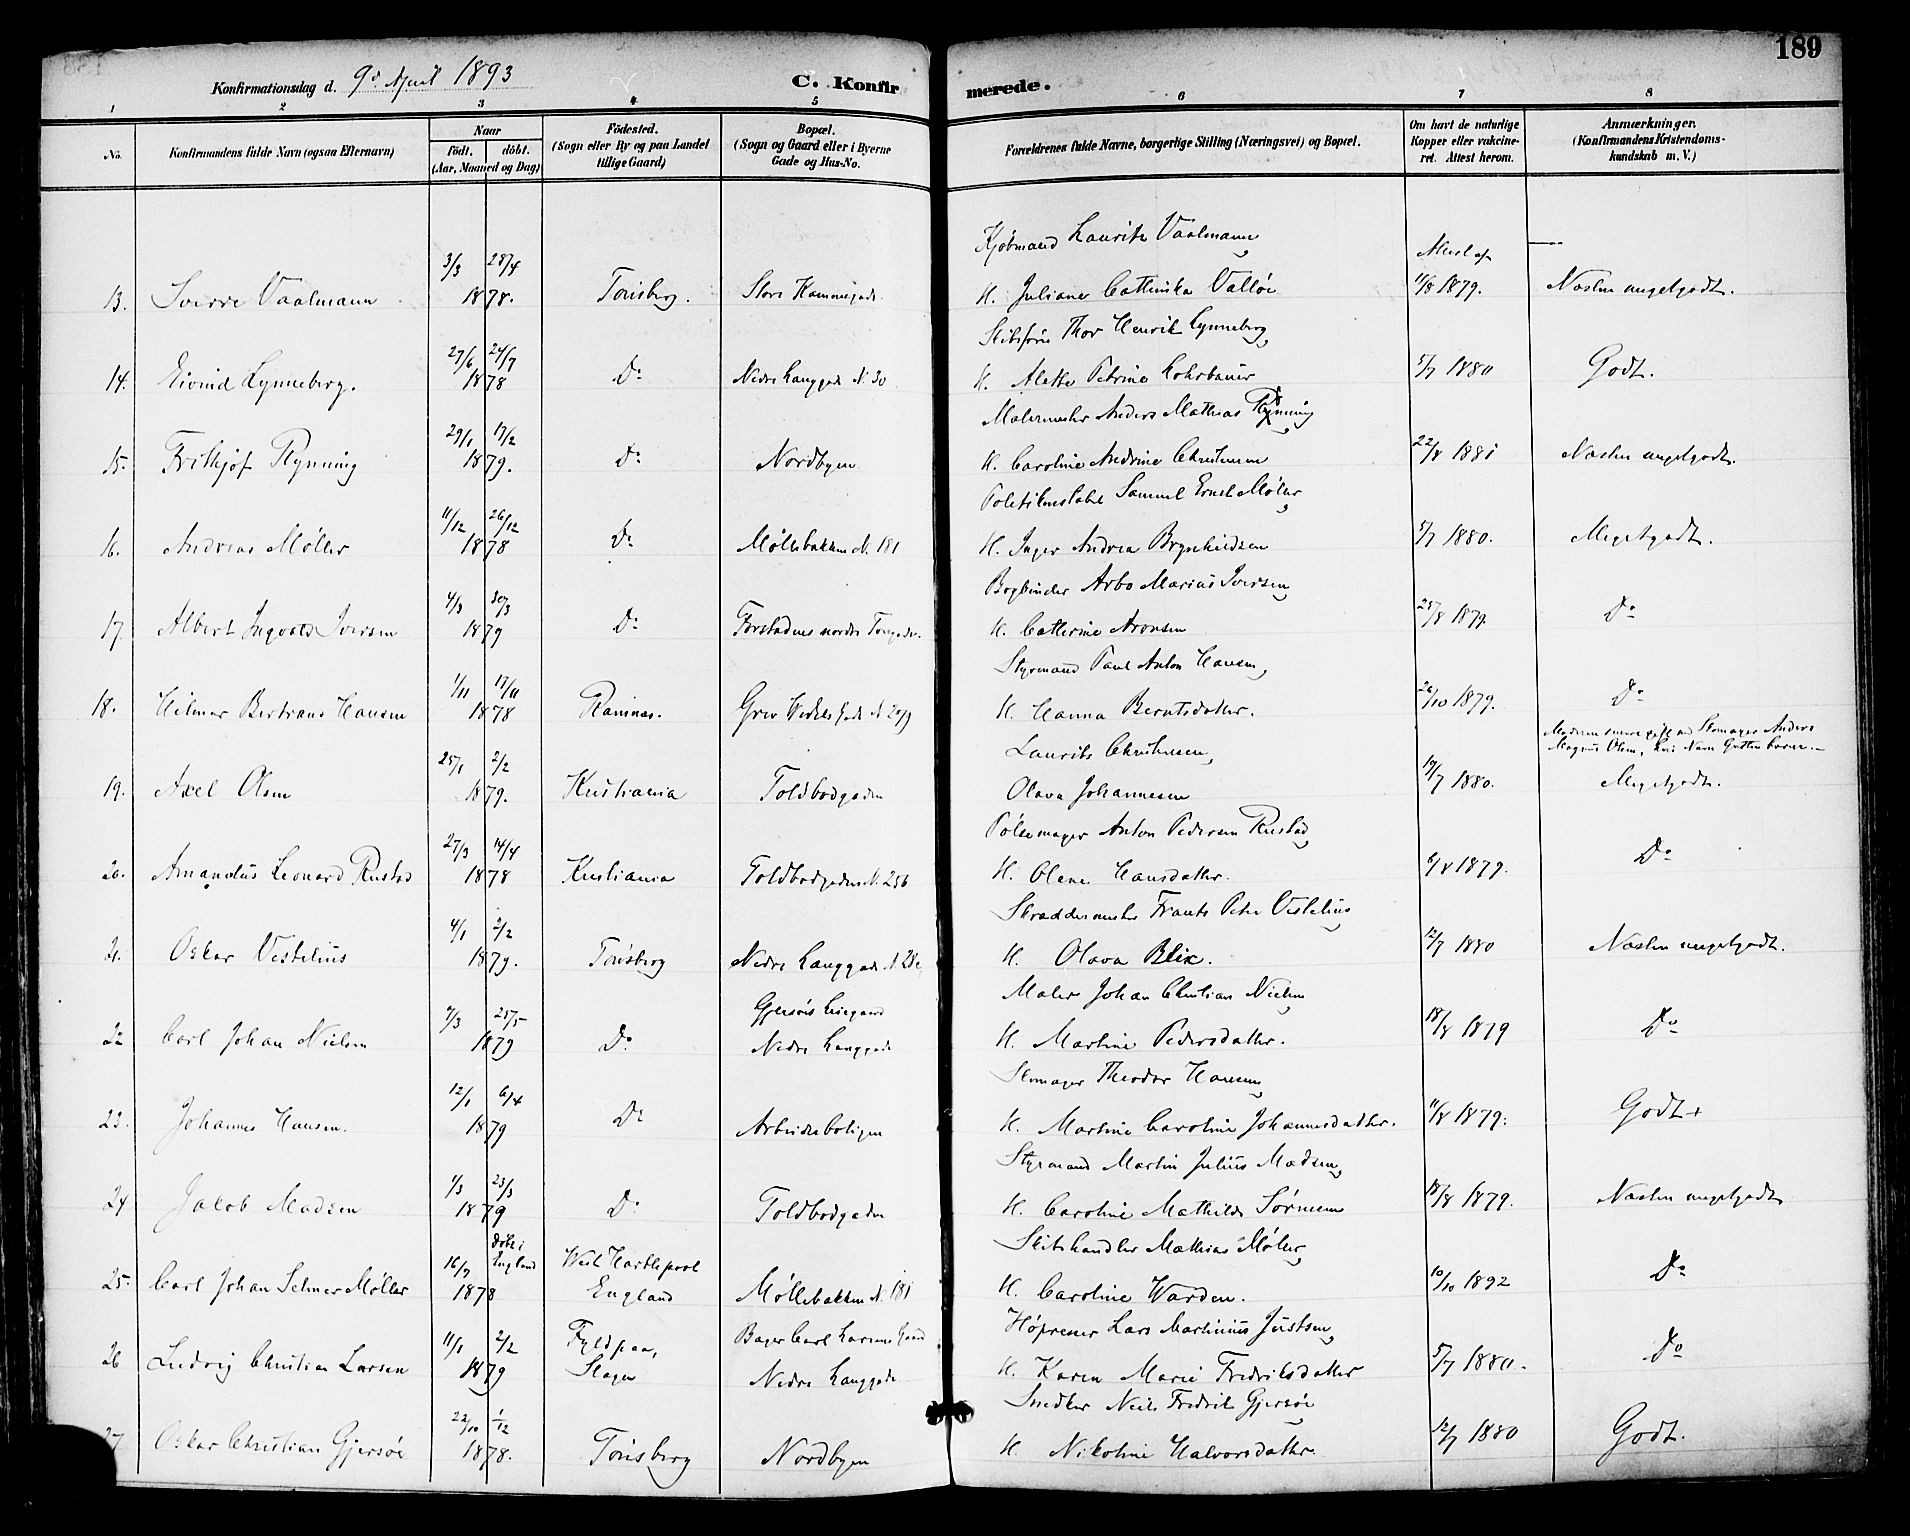 189
Konfirmationsdag d. 9de April 1893
C. Konfirmerede.
1 2 3 4 5 6 7 8
No.
Konfirmandens fulde Navn (ogsaa Efternavn)
Naar
født. døbt.
(Aar, Maaned og Dag)
Födested.
(Sogn eller By og paa Landet
tillige Gaard)
Bopæl.
(Sogn og Gaard eller i Byerne
Gade og Hus-No.
Forældrenes fulde Navne, borgerlige Stilling (Næringsvei) og Bopæl.
Om havt de naturlige
Kopper eller vaccine-
ret. Attest herom.
Anmærkninger.
(Konfirmandens Kristendoms-
kundskab m. V.)
Kjøbmand Laurits Vaalmann
3/3 28/4 Attest af —
13. Sverre Vaalmann 1878. Tønsberg. Store H. Juliane Cathinka Valløe 11/8 1879. Næsten megetgodt.
Skibsfører Thor Henrik Lynneberg,
27/6 24/7
14. Eivind Lynneberg. 1878 Do Nedre Langgade N. 30 H. Alette Petrine Lohrbauer 5/7 1880 Godt.
Malermester Anders Mathias Rynning
29/1 17/2
15. Frithjof Rynning 1879. Do Nordbyen H. Caroline Andrine Christensen 22/8 1881 Næsten megetgodt.
Politikonstabel Samuel Ernst Møller,
11/12 26/12
16. Andreas Møller 1878 Do Møllebakken N. 181 H. Inger Andrea Brynhildsen 5/7 1880. Megetgodt.
Bogbinder Arbo Marius Iversen
4/3 30/3
17. Albert Ingvald Iversen 1879 Do Forstadens nordre H. Catherine Aronsen 25/8 1879 Do
Styrmand Paul Anton Hansen,
1/11 17/11
18. Hilmar Bertrand Hansen 1878 Ramnæs. Grev Wedels Gade N. 209 H. Hanna Berntsdatter. 26/10 1879. Do
Moderen senere gift med Skomager Anders
Magnus Olsen, hvis Navn Gutten bærer.—
Laurits Christensen,
25/1 2/2
19. Axel Olsen 1879. Kristiania Toldbodgaden Olava Johannesen 19/7 1880. Megetgodt.
Pølsemager Anton Pedersen Rustad,
27/3 14/4
20. Amandus Leonard Rustad 1878 Kristiania Toldbodgaden N. 256 H. Olene Hansdatter. 6/8 1879. Do
Skræddermester Frants Peter Vestelius
4/1 2/2
21. Oskar Vestelius 1879. Tønsberg Nedre Langgade N 28c H. Olava Blix. 12/7 1880 Næsten megetgodt.
Maler Johan Christian Nielsen
7/3 25/5 Gjersøes Leiegaard
22 Carl Johan Nielsen 1879 Do Nedre Langgade H. Martine Pedersdatter. 18/8 1879 Do
Skomager Theodor Hansen,
12/1 6/4
23. Johannes Hansen. 1879 Do Arbeiderboligen H. Martine Caroline Johannesdatter. 11/8 1879. Godt+
Styrmand Martin Julius Madsen,
1/3 23/3
24 Jakob Madsen 1879 Do Toldbodgaden H. Caroline Mathilde Sørensen 18/8 1879. Næsten megetgodt
Skibshandler Mathias Møller,
16/7 døbt i England West Hartlepool
25. Carl Johan Selmer Møller 1878 England Møllebakken N. 181 H. Caroline Warden. 10/10 1892 Do
Høprener Lars Martinius Justsen,
11/1 2/2 Fyldpaa, Bager Carl Larsens Gaard
26 Ludvig Christian Larsen 1879 Slagen Nedre Langgade H. Karen Marie Fredriksdatter 5/7 1880. Do
Snedker Niels Fredrik Gjersøe
22/10 1/12
27 Oskar Christian Gjersøe 1878. Tønsberg Nordbyen H. Nikoline Halvorsdatter. 12/7 1880 Godt.